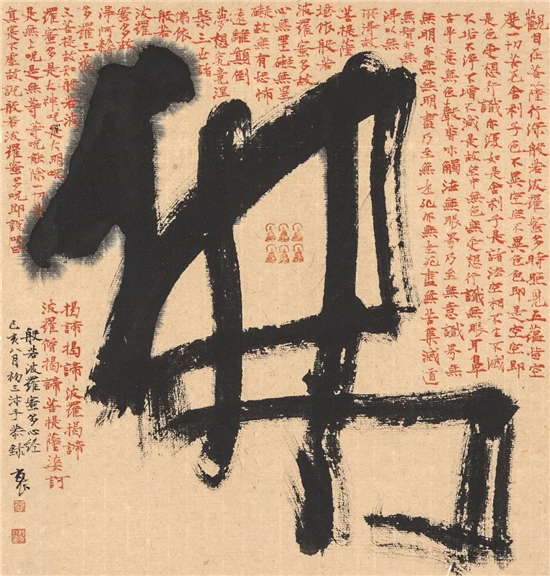 觀自在菩薩行深般若波羅蜜多時照見五蘊皆空
度一切苦厄舍利子色不異空空不異色色即是空空即
是色受想行識亦復如是舍利子是諸法空相不生不滅
不垢不淨不增不減是故空中無色無受想行識無眼耳鼻
舌身意無色聲香味觸法無眼界乃至無意識界無
無明亦無無明盡乃至無老死亦無老死盡無苦集滅道
無智亦無
得以無
所得故
菩提薩
埵依般若
波羅蜜多故
心無罣礙無罣
礙故無有恐怖
遠離顛倒
夢想究竟涅
槃三世諸
佛依
般若
波羅
蜜多故
得阿耨
多羅三藐
三菩提故知般若波
羅蜜多是大神咒是大明咒
是無上咒是無等等咒能除一切苦
真實不虛故說般若波羅蜜多咒即說咒曰
揭諦揭諦波羅揭諦
波羅僧揭諦菩提薩婆訶
般若波羅蜜多心經
己亥八月初三沐手恭錄